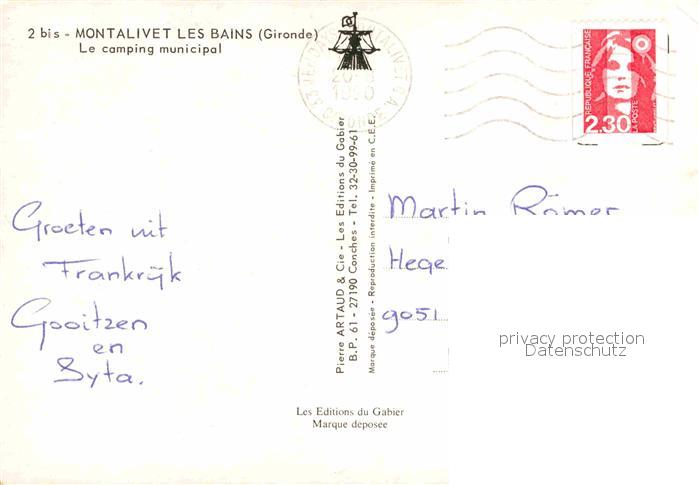 2 bis - MONTALIVET LES BAINS (Gironde)
Le camping municipal
1990
RÉPUBLIQUE FRANÇAISE
2.30
LA POSTE
Pierre ARTAUD & Cie - Les Editions du Gabier
B.P. 61 - 27190 Conches - Tel. 32-30-99-61
Marque déposée - Reproduction interdite - Imprimé en C.E.E.
Groeten uit
Frankrijk
Gooitzen
en
Syta.
Martin Römer
Hege
9051
privacy protection
Datenschutz
Les Editions du Gabier
Marque déposée